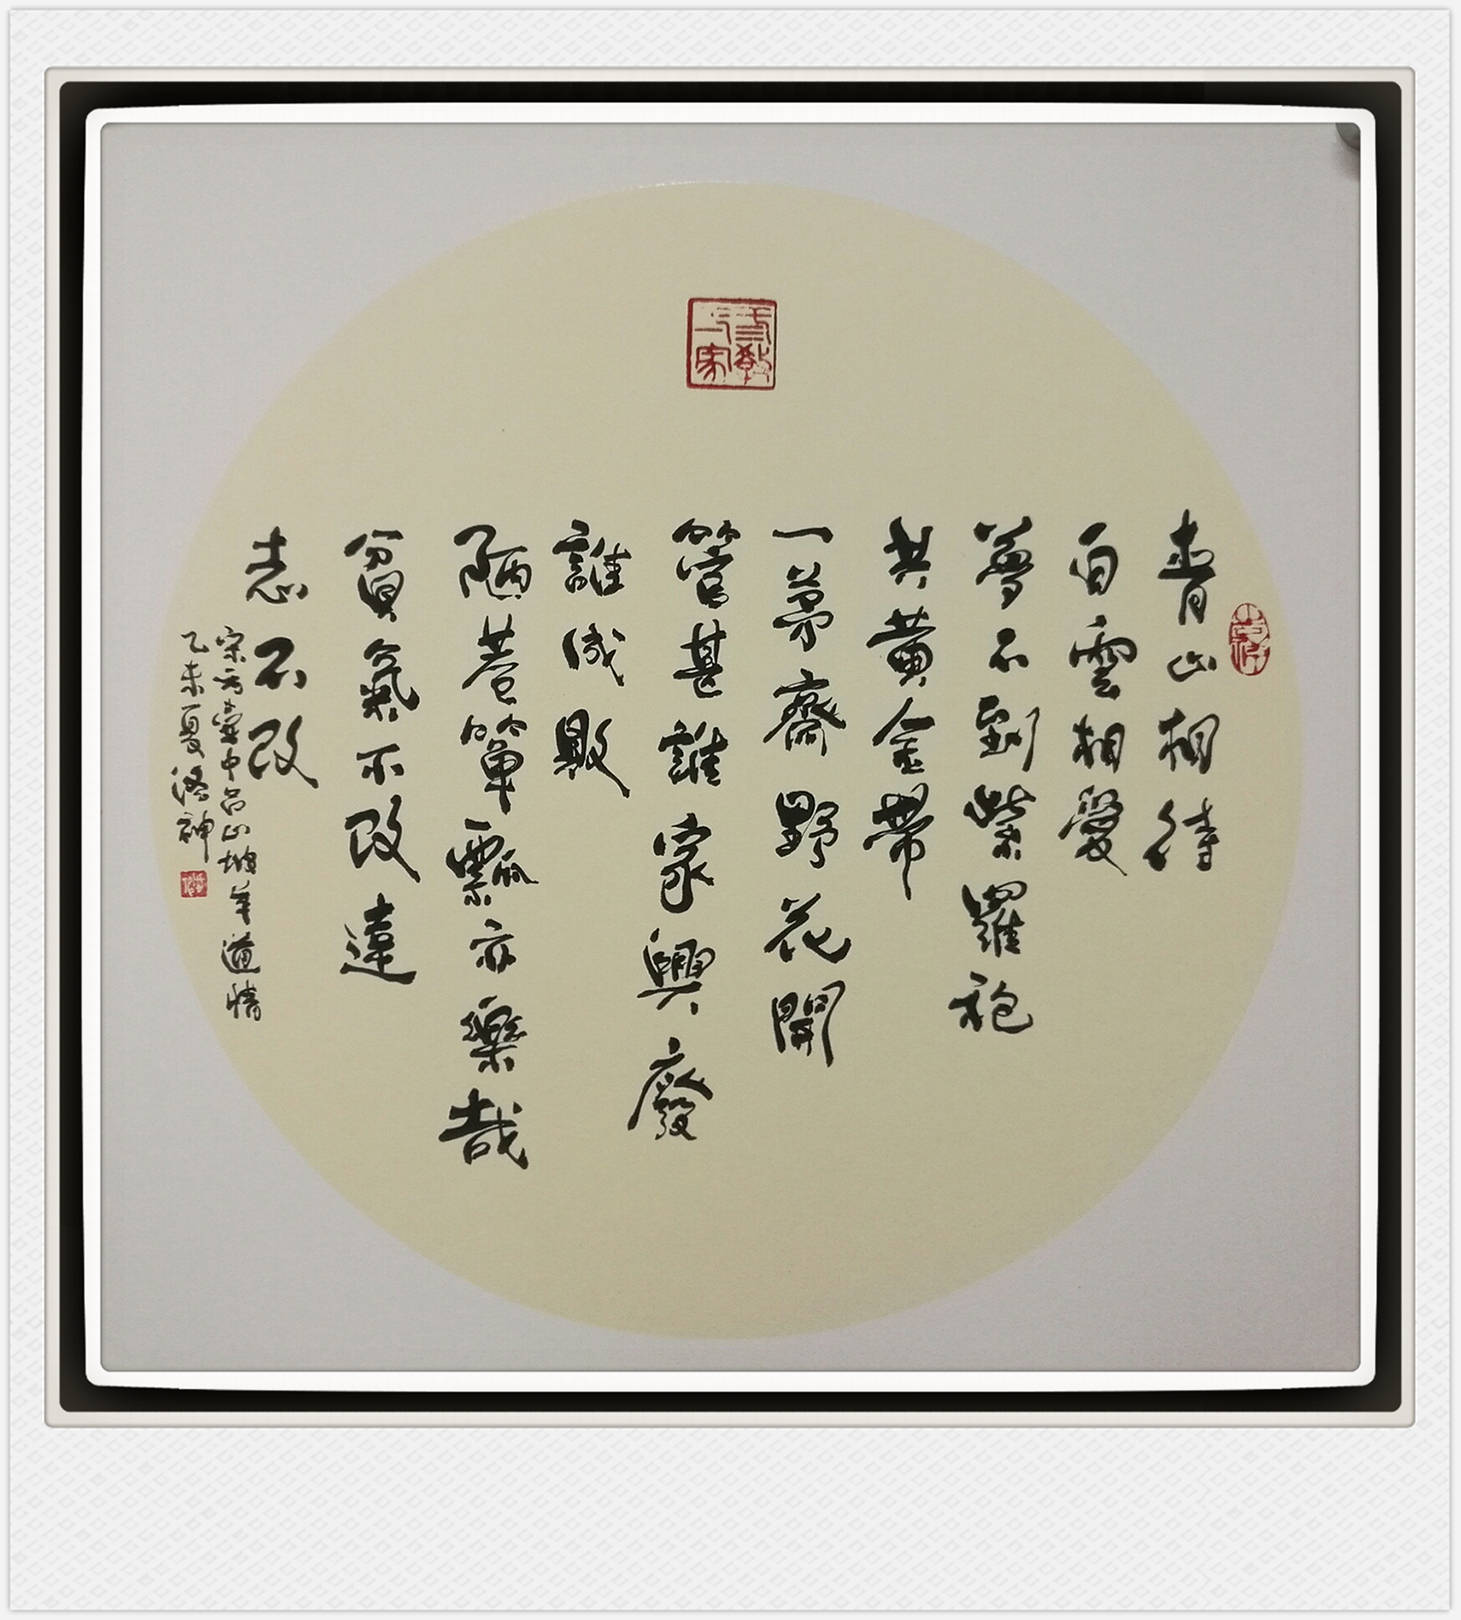 青山相待
白雲相愛
夢不到紫羅袍
共黄金帶
一茅齋野花開
管甚誰家興廢
誰成敗
陋巷簞瓢亦樂哉
貧氣不改達
志不改
宋方壺中呂山坡羊道情
乙未夏洛神